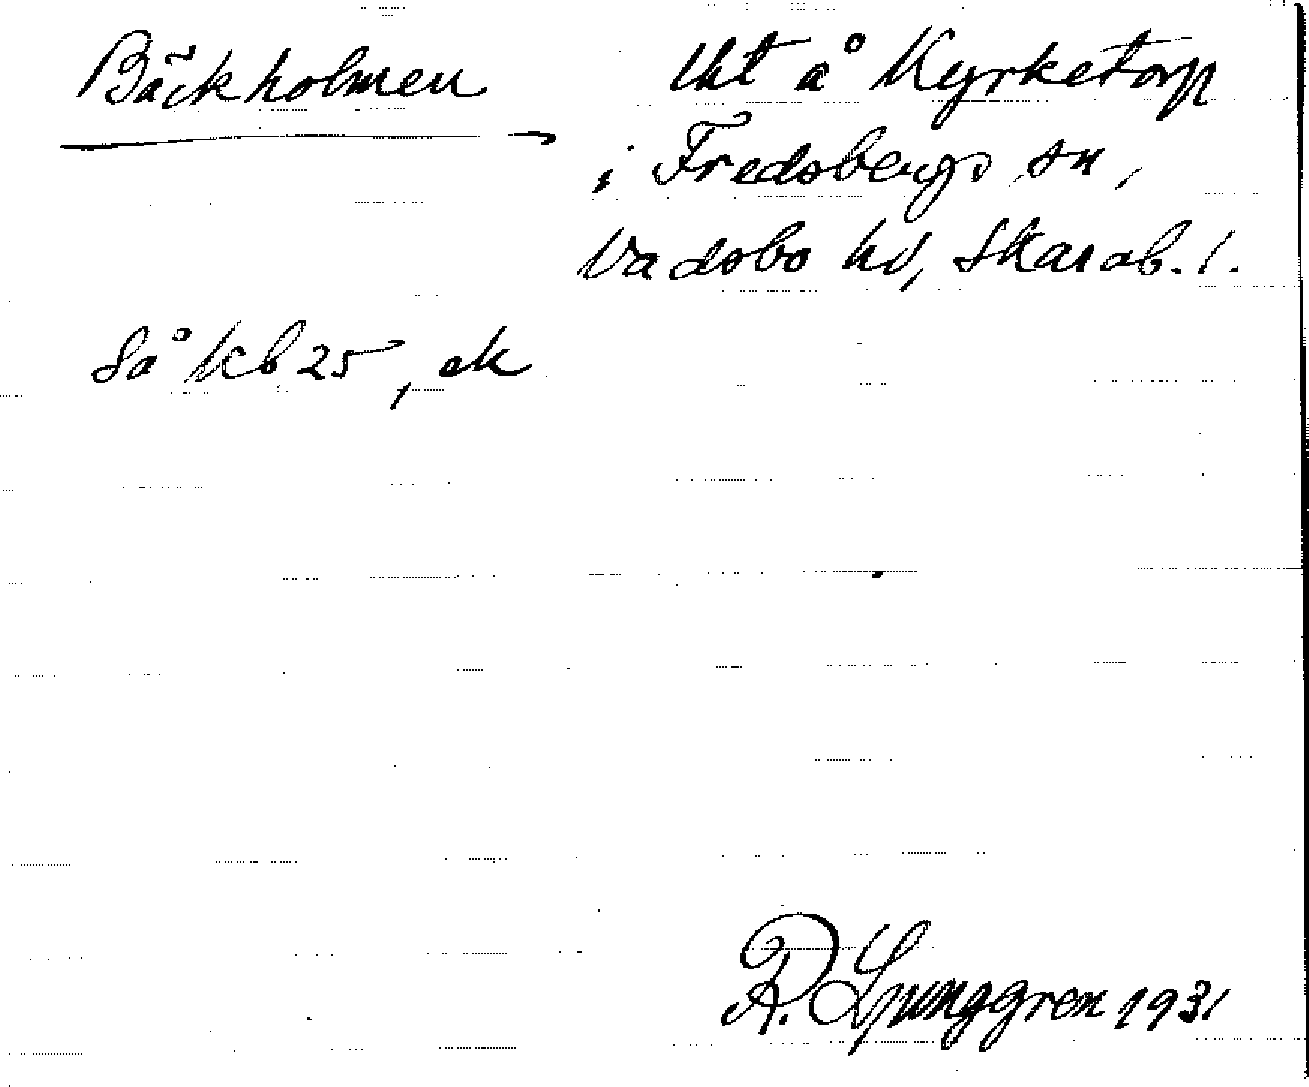 Bäckholmen
lht å Kyrketorp
i Fredsbergs sn,
Vadsbo hd, Skarab. l.
Så kb 25, ek
R. Ljunggren 1931